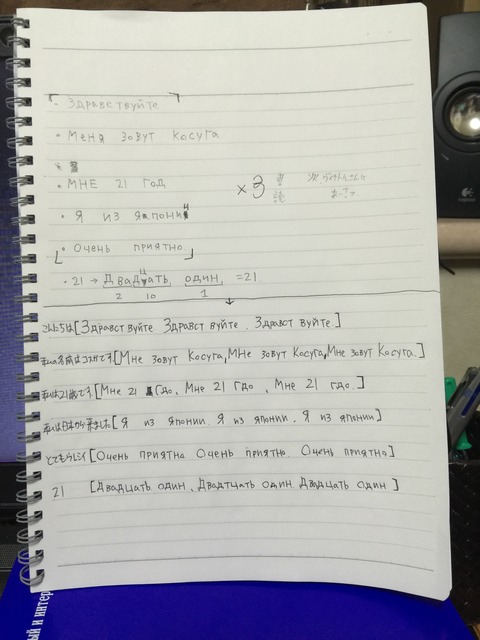 ・Здравствуйте
・Меня зовут Косуга
・МНЕ 21 ГОД
×3
・Я из японии
・Очень приятно
・21 → Двадцать, один, =21
2 10 1
↓
こんにちは[Здравствуйте. Здравствуйте. Здравствуйте.]
私の名前はコスガです[Мне зовут Косуга, Мне зовут Косуга, Мне зовут Косуга.]
私は21歳です[Мне 21 Гдо, Мне 21 Гдо, Мне 21 гдо.]
私は日本から来ました[Я из японии. Я из японии. Я из японии]
とてもうれしく[Очень приятно Очень приятно. Очень приятно]
21 [Двадцать один, Двадтцать один Двадцать один]
Logitech
ый и интер